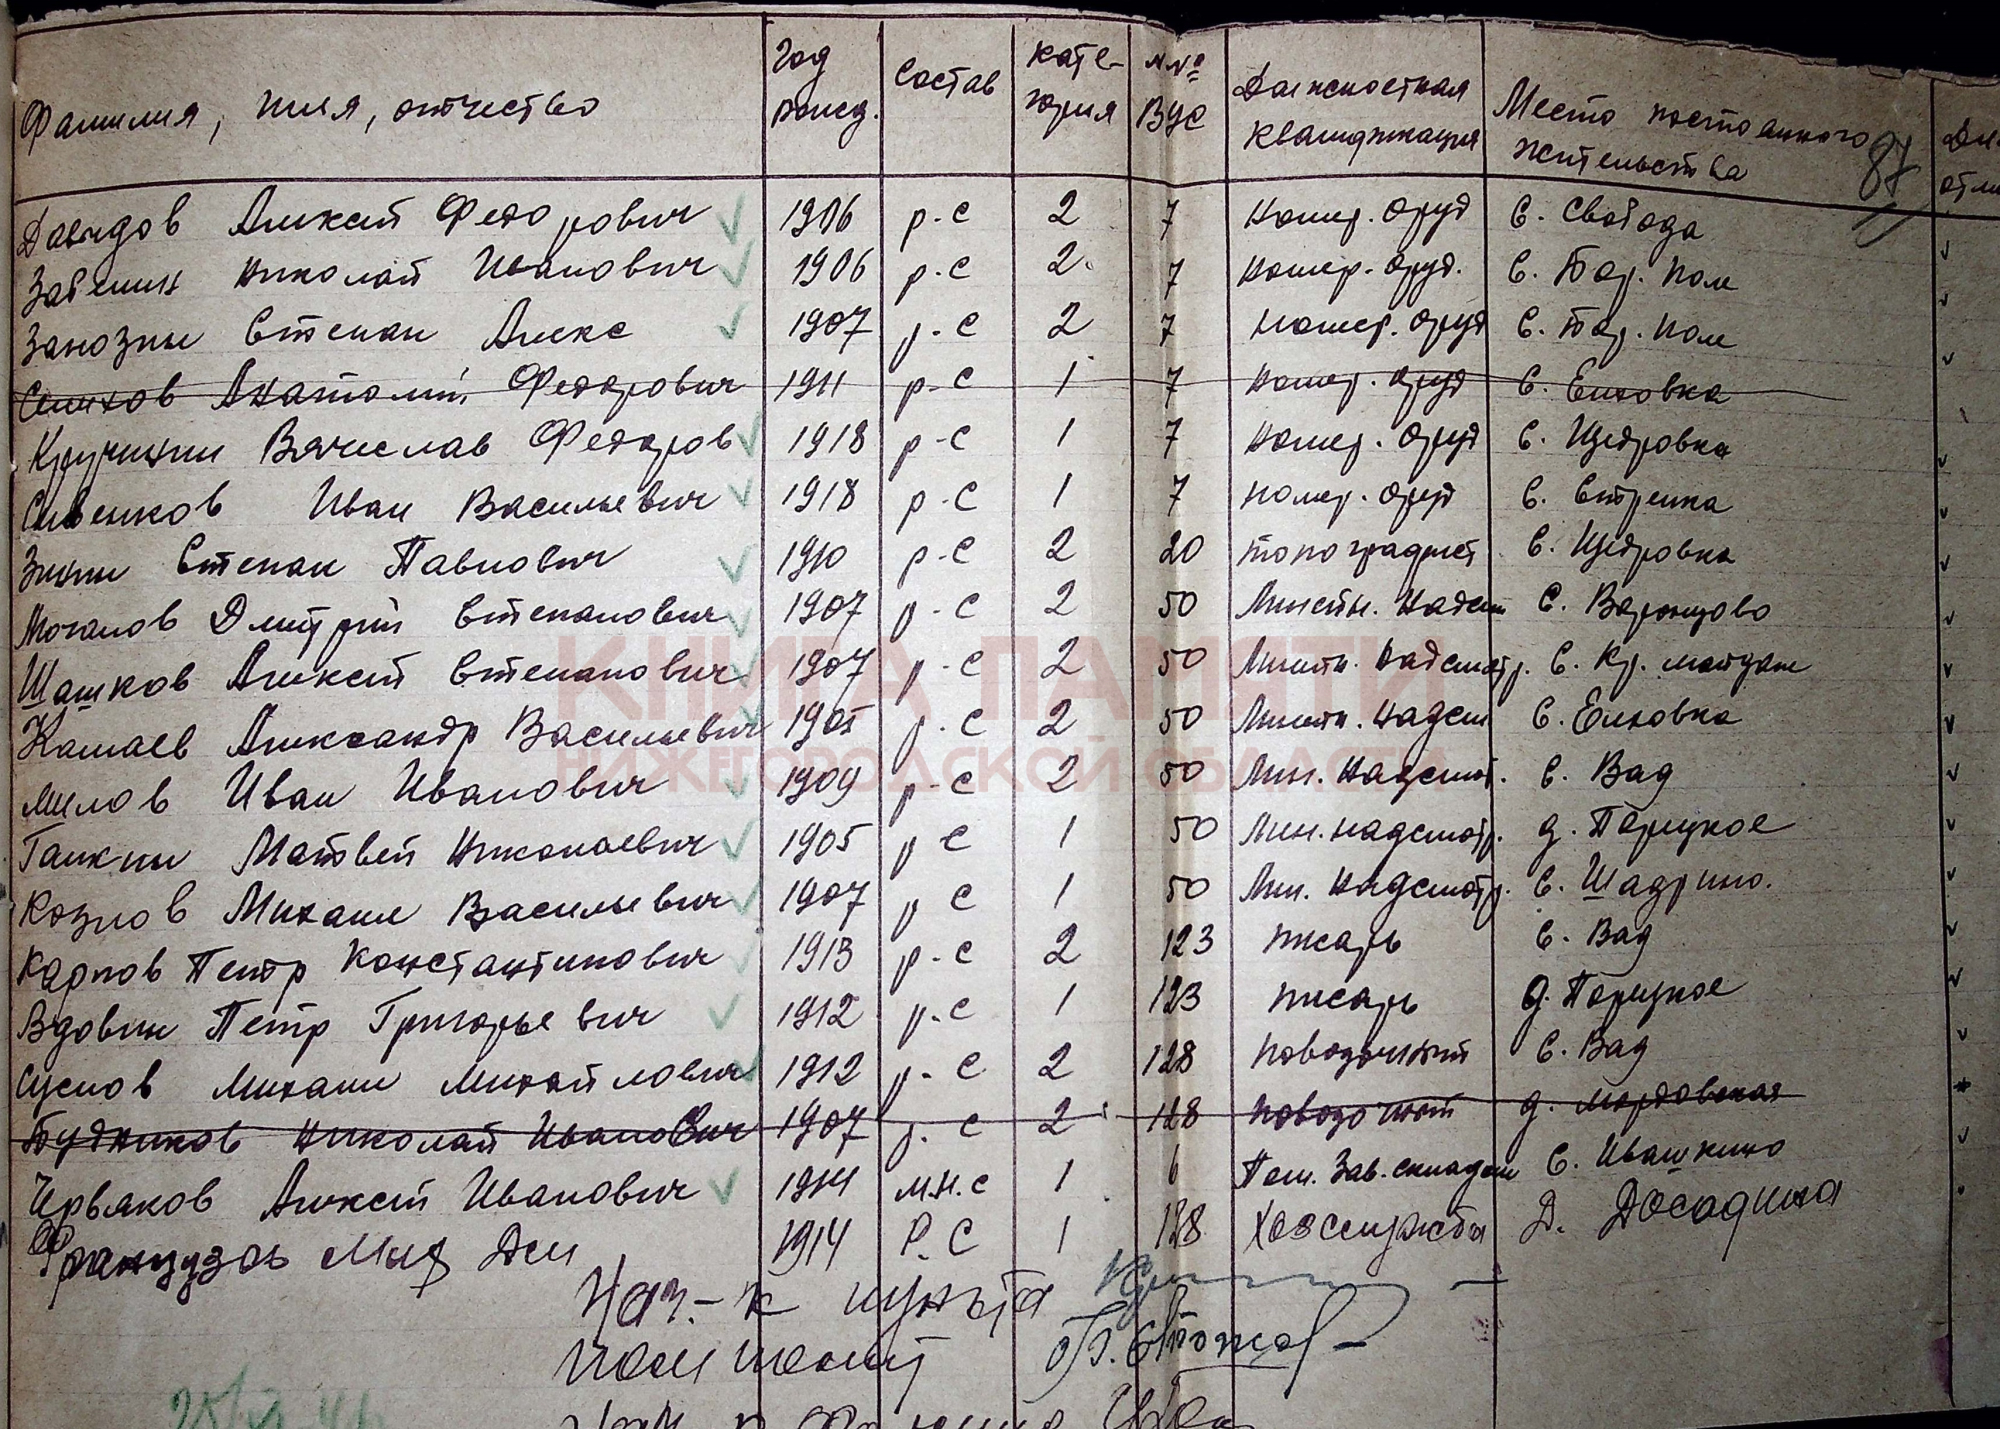 Фамилия, имя, отчество Год рожд. Состав Кате-гория №№ ВУС Должностная квалификация Место постоянного жительства
87
Давыдов Алексей Федорович 1906 р-с 2 7 Номер. оруд С. Свобода
Забелин Николай Иванович 1906 р-с 2 7 Номер. оруд. С. Бор. Пол
Занозин Степан Алекс 1907 р-с 2 7 Номер. оруд С. Бор. Пол
Анатолий Федорович 1911 р-с 1 7 Номер. оруд С. Елховка
Кручинин Вячеслав Федоров 1918 р-с 1 7 Номер. оруд С. Щедровка
Иван Васильевич 1918 р-с 1 7 Номер. оруд С. Стрелка
Зинин Степан Павлович 1910 р-с 2 20 топографист С. Щедровка
Мочалов Дмитрий Степанович 1907 р-с 2 50 Линейн. Надсм С. Воронцово
Шашков Алексей Степанович 1907 р-с 2 50 Линейн. Надсмотр. С. Кр. майдан
Камаев Александр Васильевич 1905 р-с 2 50 Линейн. Надсм. С. Елховка
Милов Иван Иванович 1909 р-с 2 50 Лин. Надсмот. С. Вад
Галкин Матвей Николаевич 1905 р с 1 50 Лин. надсмотр. д. Порецкое
Козлов Михаил Васильевич 1907 р с 1 50 Лин. Надсмотр. С. Шадрино.
Карпов Петр Константинович 1913 р-с 2 123 писарь С. Вад
Вдовин Петр Григорьевич 1912 р-с 1 123 писарь д. Порецкое
Суслов Михаил Михайлович 1912 р-с 2 128 повозочный С. Вад
Будников Николай Иванович 1907 р-с 2 128 повозочный д. Мордовская
Червяков Алексей Иванович 1914 м.н.с 1 6 Пом. Зав. складом С. Ивашкино
Французов Мих Дм 1914 Р.С 1 128 Хозслужбы Д. Досадина
Нач-к пункта
КНИГА ПАМЯТИ
НИЖЕГОРОДСКОЙ ОБЛАСТИ